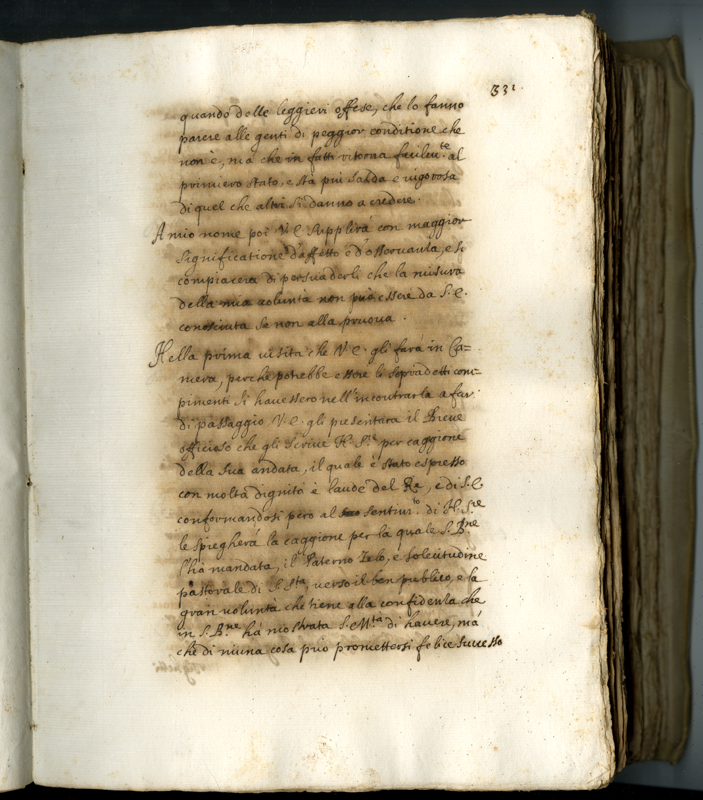 331.
quando delle leggieri offese, che lo fanno
parere alle genti di peggior conditione che
non è, ma che in fatti ritorna facilm.te al
primiero stato, e sta più salda e vigorosa
di quel che altri si danno a credere.
A mio nome poi V.E. supplirà con maggior
significatione d'affetto e d'osservanza, e si
compiacerà di persuaderli che la misura
della mia volunta non può essere da S.E.
conosciuta se non alla pruova.
Nella prima visita che V.E. gli farà in Ca=
mera, perche potrebbe essere li sopradetti com-
pimenti si havessero nell'incontrarla a far
di passaggio V.E. gli presentarà il Breve
officioso che gli scrive N. S.re per caggione
della sua andata, il quale è stato espresso
con molta dignità e laude del Re, e di S.E.
conformandosi però al sentim.to di N. S.re
le spiegherà la caggione per la quale S. B.ne
l'hà mandata, il Paterno Zelo, e solecitudine
pastorale di S. S.ta verso il ben publico, e la
gran volunta che tiene alla confidenza che
in S. B.ne hà mostrata S. M.tà di havere, mà
che di niuna cosa può promettersi felice successo